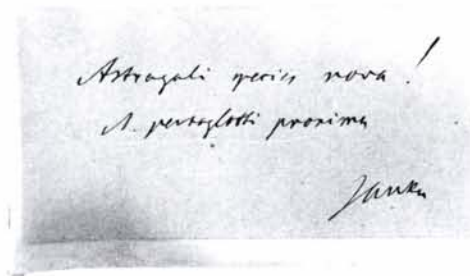 Astragali species nova!
A. pentaglotti proxima
Janka